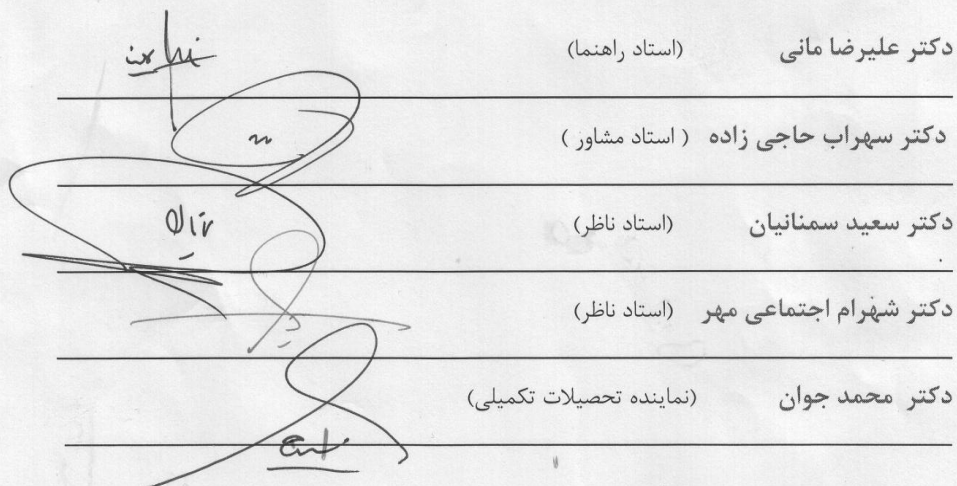 دکتر علیرضا مانی (استاد راهنما)
دکتر سهراب حاجی زاده ( استاد مشاور )
دکتر سعید سمنانیان (استاد ناظر)
دکتر شهرام اجتماعی مهر (استاد ناظر)
دکتر محمد جوان (نماینده تحصیلات تکمیلی)